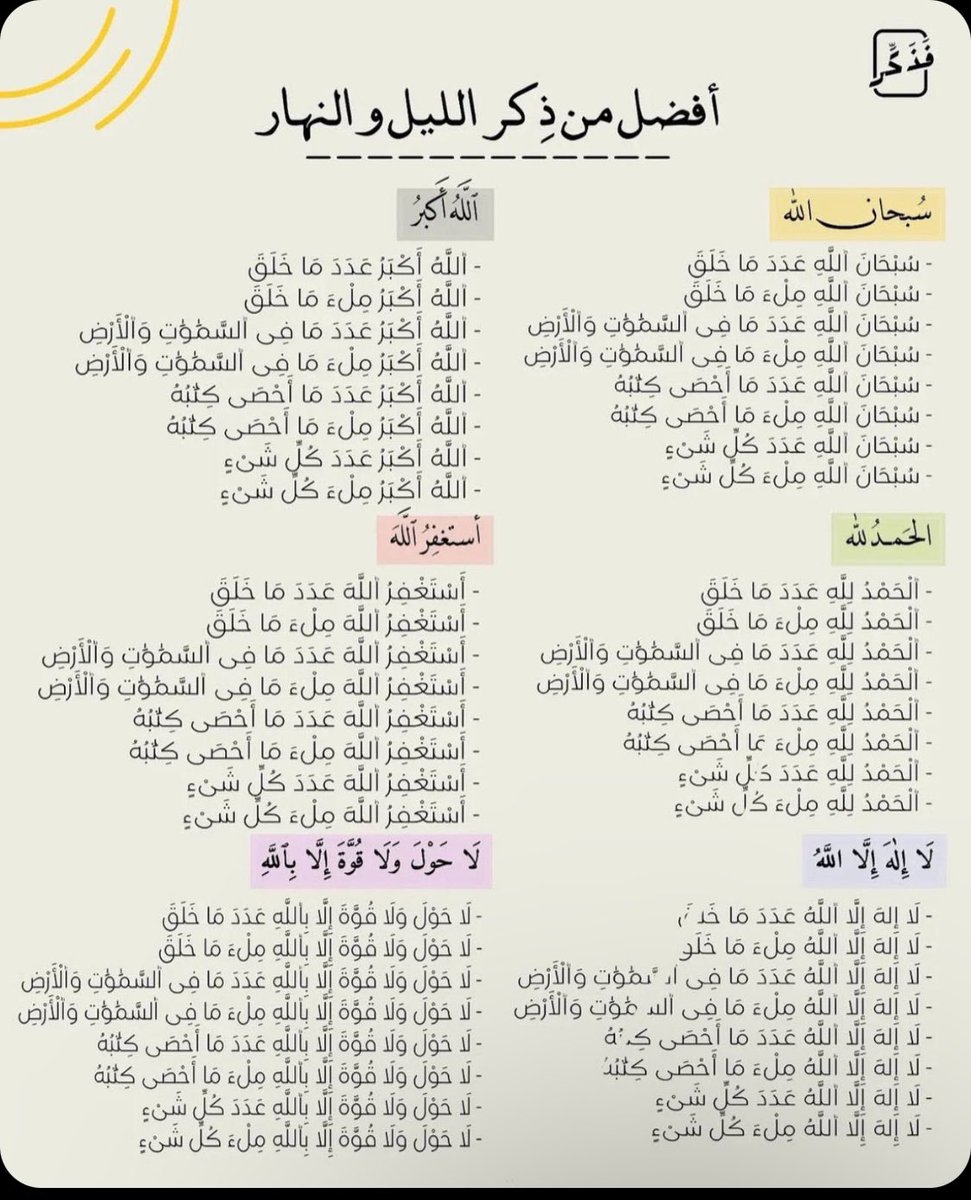 فَذَكِّر
أفضل من ذِكر الليل و النهار
سُبحان الله
- سُبْحَانَ ٱللَّهِ عَدَدَ مَا خَلَقَ
- سُبْحَانَ ٱللَّهِ مِلْءَ مَا خَلَقَ
- سُبْحَانَ ٱللَّهِ عَدَدَ مَا فِى ٱلسَّمَٰوَٰتِ وَٱلْأَرْضِ
- سُبْحَانَ ٱللَّهِ مِلْءَ مَا فِى ٱلسَّمَٰوَٰتِ وَٱلْأَرْضِ
- سُبْحَانَ ٱللَّهِ عَدَدَ مَا أَحْصَى كِتَٰبُهُ
- سُبْحَانَ ٱللَّهِ مِلْءَ مَا أَحْصَى كِتَٰبُهُ
- سُبْحَانَ ٱللَّهِ عَدَدَ كُلِّ شَىْءٍ
- سُبْحَانَ ٱللَّهِ مِلْءَ كُلِّ شَىْءٍ
ٱللَّهُ أَكَبرُ
- ٱللَّهُ أَكْبَرُ عَدَدَ مَا خَلَقَ
- ٱللَّهُ أَكْبَرُ مِلْءَ مَا خَلَقَ
- ٱللَّهُ أَكْبَرُ عَدَدَ مَا فِى ٱلسَّمَٰوَٰتِ وَٱلْأَرْضِ
- ٱللَّهُ أَكْبَرُ مِلْءَ مَا فِى ٱلسَّمَٰوَٰتِ وَٱلْأَرْضِ
- ٱللَّهُ أَكْبَرُ عَدَدَ مَا أَحْصَى كِتَٰبُهُ
- ٱللَّهُ أَكْبَرُ مِلْءَ مَا أَحْصَى كِتَٰبُهُ
- ٱللَّهُ أَكْبَرُ عَدَدَ كُلِّ شَىْءٍ
- ٱللَّهُ أَكْبَرُ مِلْءَ كُلِّ شَىْءٍ
الحَمدُ لله
- ٱلْحَمْدُ لِلَّهِ عَدَدَ مَا خَلَقَ
- ٱلْحَمْدُ لِلَّهِ مِلْءَ مَا خَلَقَ
- ٱلْحَمْدُ لِلَّهِ عَدَدَ مَا فِى ٱلسَّمَٰوَٰتِ وَٱلْأَرْضِ
- ٱلْحَمْدُ لِلَّهِ مِلْءَ مَا فِى ٱلسَّمَٰوَٰتِ وَٱلْأَرْضِ
- ٱلْحَمْدُ لِلَّهِ عَدَدَ مَا أَحْصَى كِتَٰبُهُ
- ٱلْحَمْدُ لِلَّهِ مِلْءَ مَا أَحْصَى كِتَٰبُهُ
- ٱلْحَمْدُ لِلَّهِ عَدَدَ كُلِّ شَىْءٍ
- ٱلْحَمْدُ لِلَّهِ مِلْءَ كُلِّ شَىْءٍ
أستغفِرُ ٱللَّهَ
- أَسْتَغْفِرُ ٱللَّهَ عَدَدَ مَا خَلَقَ
- أَسْتَغْفِرُ ٱللَّهَ مِلْءَ مَا خَلَقَ
- أَسْتَغْفِرُ ٱللَّهَ عَدَدَ مَا فِى ٱلسَّمَٰوَٰتِ وَٱلْأَرْضِ
- أَسْتَغْفِرُ ٱللَّهَ مِلْءَ مَا فِى ٱلسَّمَٰوَٰتِ وَٱلْأَرْضِ
- أَسْتَغْفِرُ ٱللَّهَ عَدَدَ مَا أَحْصَى كِتَٰبُهُ
- أَسْتَغْفِرُ ٱللَّهَ مِلْءَ مَا أَحْصَى كِتَٰبُهُ
- أَسْتَغْفِرُ ٱللَّهَ عَدَدَ كُلِّ شَىْءٍ
- أَسْتَغْفِرُ ٱللَّهَ مِلْءَ كُلِّ شَىْءٍ
لَا إِلَٰهَ إِلَّا اللَّهُ
- لَا إِلهَ إِلَّا ٱللَّهُ عَدَدَ مَا
- لَا إِلهَ إِلَّا ٱللَّهُ مِلْءَ مَا
- لَا إِلهَ إِلَّا ٱللَّهُ عَدَدَ مَا فِى وَٱلْأَرْضِ
- لَا إِلهَ إِلَّا ٱللَّهُ مِلْءَ مَا فِى ٱلسَّمَٰوَٰتِ وَٱلْأَرْضِ
- لَا إِلهَ إِلَّا ٱللَّهُ عَدَدَ مَا أَحْصَى
- لَا إِلهَ إِلَّا ٱللَّهُ مِلْءَ مَا أَحْصَى كِتَٰبُهُ
- لَا إِلهَ إِلَّا ٱللَّهُ عَدَدَ كُلِّ شَىْءٍ
- لَا إِلهَ إِلَّا ٱللَّهُ مِلْءَ كُلِّ شَىْءٍ
لَا حَوْلَ وَلَا قُوَّةَ إِلَّا بِٱللَّهِ
- لَا حَوْلَ وَلَا قُوَّةَ إِلَّا بِٱللَّهِ عَدَدَ مَا خَلَقَ
- لَا حَوْلَ وَلَا قُوَّةَ إِلَّا بِٱللَّهِ مِلْءَ مَا خَلَقَ
- لَا حَوْلَ وَلَا قُوَّةَ إِلَّا بِٱللَّهِ عَدَدَ مَا فِى ٱلسَّمَٰوَٰتِ وَٱلْأَرْضِ
- لَا حَوْلَ وَلَا قُوَّةَ إِلَّا بِٱللَّهِ مِلْءَ مَا فِى ٱلسَّمَٰوَٰتِ وَٱلْأَرْضِ
- لَا حَوْلَ وَلَا قُوَّةَ إِلَّا بِٱللَّهِ عَدَدَ مَا أَحْصَى كِتَٰبُهُ
- لَا حَوْلَ وَلَا قُوَّةَ إِلَّا بِٱللَّهِ مِلْءَ مَا أَحْصَى كِتَٰبُهُ
- لَا حَوْلَ وَلَا قُوَّةَ إِلَّا بِٱللَّهِ عَدَدَ كُلِّ شَىْءٍ
- لَا حَوْلَ وَلَا قُوَّةَ إِلَّا بِٱللَّهِ مِلْءَ كُلِّ شَىْءٍ